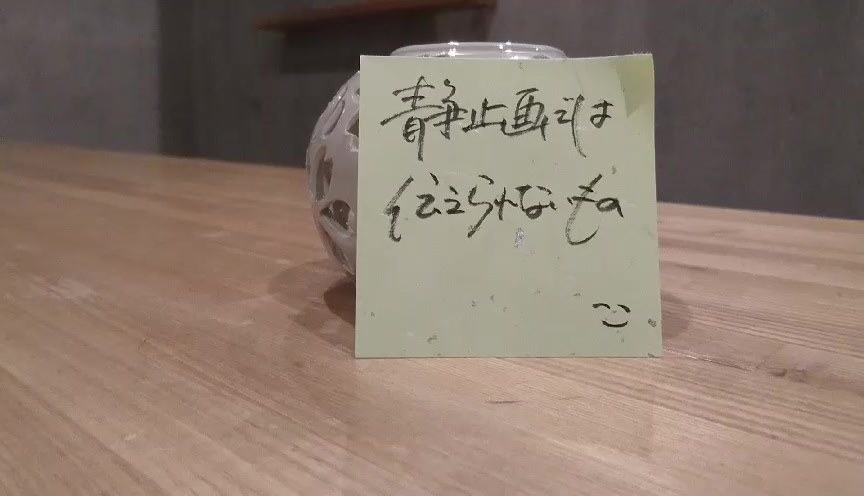 静止画では
伝えられないもの